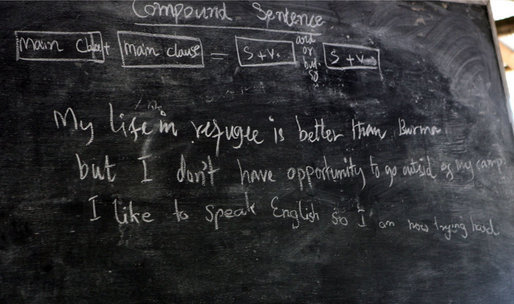 Compound Sentence
Main Clause + main clause = S + V. and or but so S + V.
My life in refugee is better than Burma
but I don't have opportunity to go outsid of my camp
I like to speak English so I am now trying hard